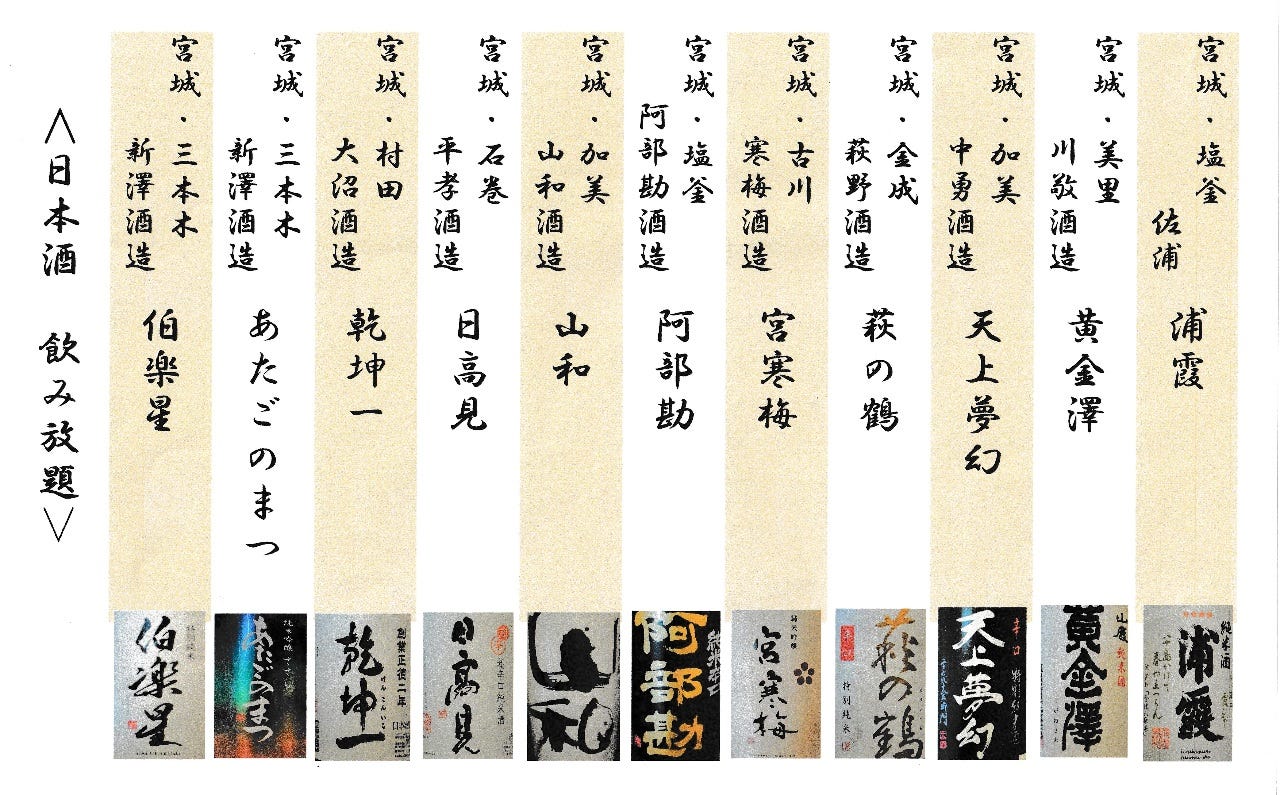 宮城・塩釜
佐浦
浦霞
宮城・美里
川敬酒造
黄金澤
宮城・加美
中勇酒造
天上夢幻
宮城・金成
萩野酒造
萩の鶴
宮城・古川
寒梅酒造
宮寒梅
宮城・塩釜
阿部勘酒造
阿部勘
宮城・加美
山和酒造
山和
宮城・石巻
平孝酒造
日高見
宮城・村田
大沼酒造
乾坤一
宮城・三本木
新澤酒造
あたごのまつ
宮城・三本木
新澤酒造
伯楽星
<日本酒 飲み放題>
純米酒
浦霞
山廃 純米酒
黄金澤
辛口
天上夢幻
萩の鶴
特別純米
純米吟醸
宮寒梅
阿部勘
日高見
創業正徳二年
けんこんいち
乾坤一
あたごのまつ
伯楽星